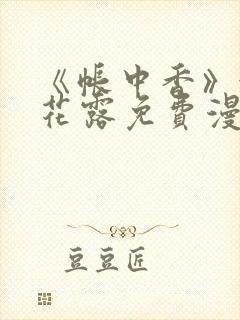 《帐中香》
花露免费漫
豆豆匠